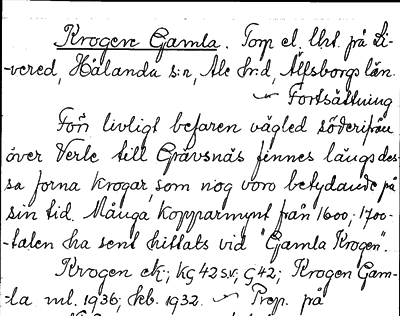 Krogen Gamla. Torp el. lht. på Li-
vered, Hålanda s:n, Ale h:d, Älfsborgs län.
Fortsättning
Förr livligt befaren vägled söderifrån
över Verle till Gräfsnäs finnes längs des-
sa forna krogar, som nog voro betydande på
sin tid. Många kopparmynt från 1600-, 1700-
-talen ha sent hittats vid "Gamla Krogen".
Krogen ek; KG 42 sv; G 42; Krogen Gam-
-la ml. 1936; hb. 1932. Prep. på